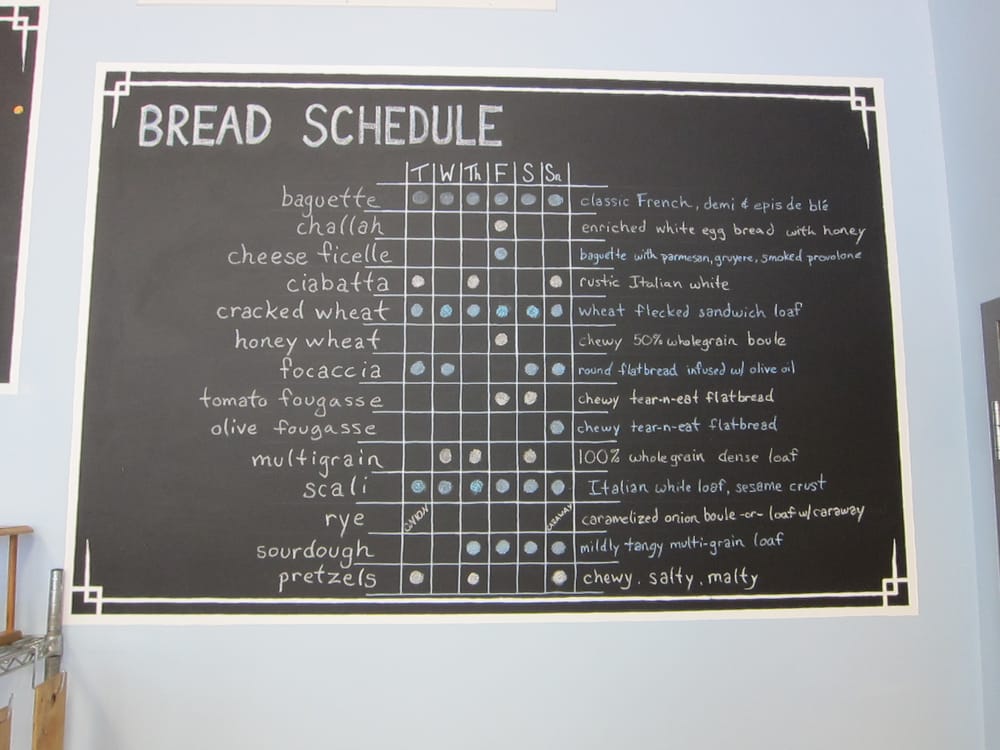 BREAD SCHEDULE
T W Th F S Sn
baguette classic French, demi & epis de blé
challah enriched white egg bread with honey
cheese ficelle baguette with parmesan, gruyere, smoked provolone
ciabatta rustic Italian white
cracked wheat wheat flecked sandwich loaf
honey wheat chewy 50% wholegrain boule
focaccia round flatbread infused w/ olive oil
tomato fougasse chewy tear-n-eat flatbread
olive fougasse chewy tear-n-eat flatbread
multigrain 100% whole grain dense loaf
scali Italian white loaf, sesame crust
rye ONION CARAWAY caramelized onion boule -or- loaf w/caraway
sourdough mildly tangy multi-grain loaf
pretzels chewy, salty, malty